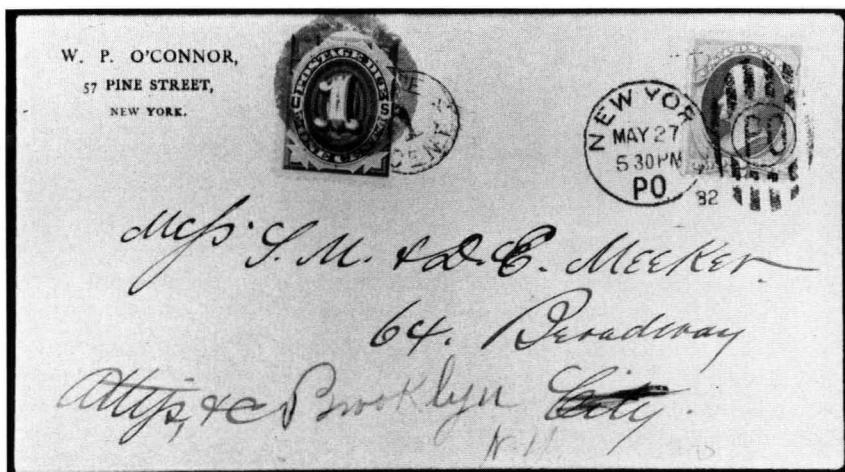 W. P. O'CONNOR,
57 PINE STREET,
NEW YORK.
POSTAGE DUE
1
CENT
NEW YOR
MAY 27
5 30 PM
PO
82
PO
Mess. S. M. & D. E. Meeker
64. Broadway
Attys, &c Brooklyn City.
N.Y.